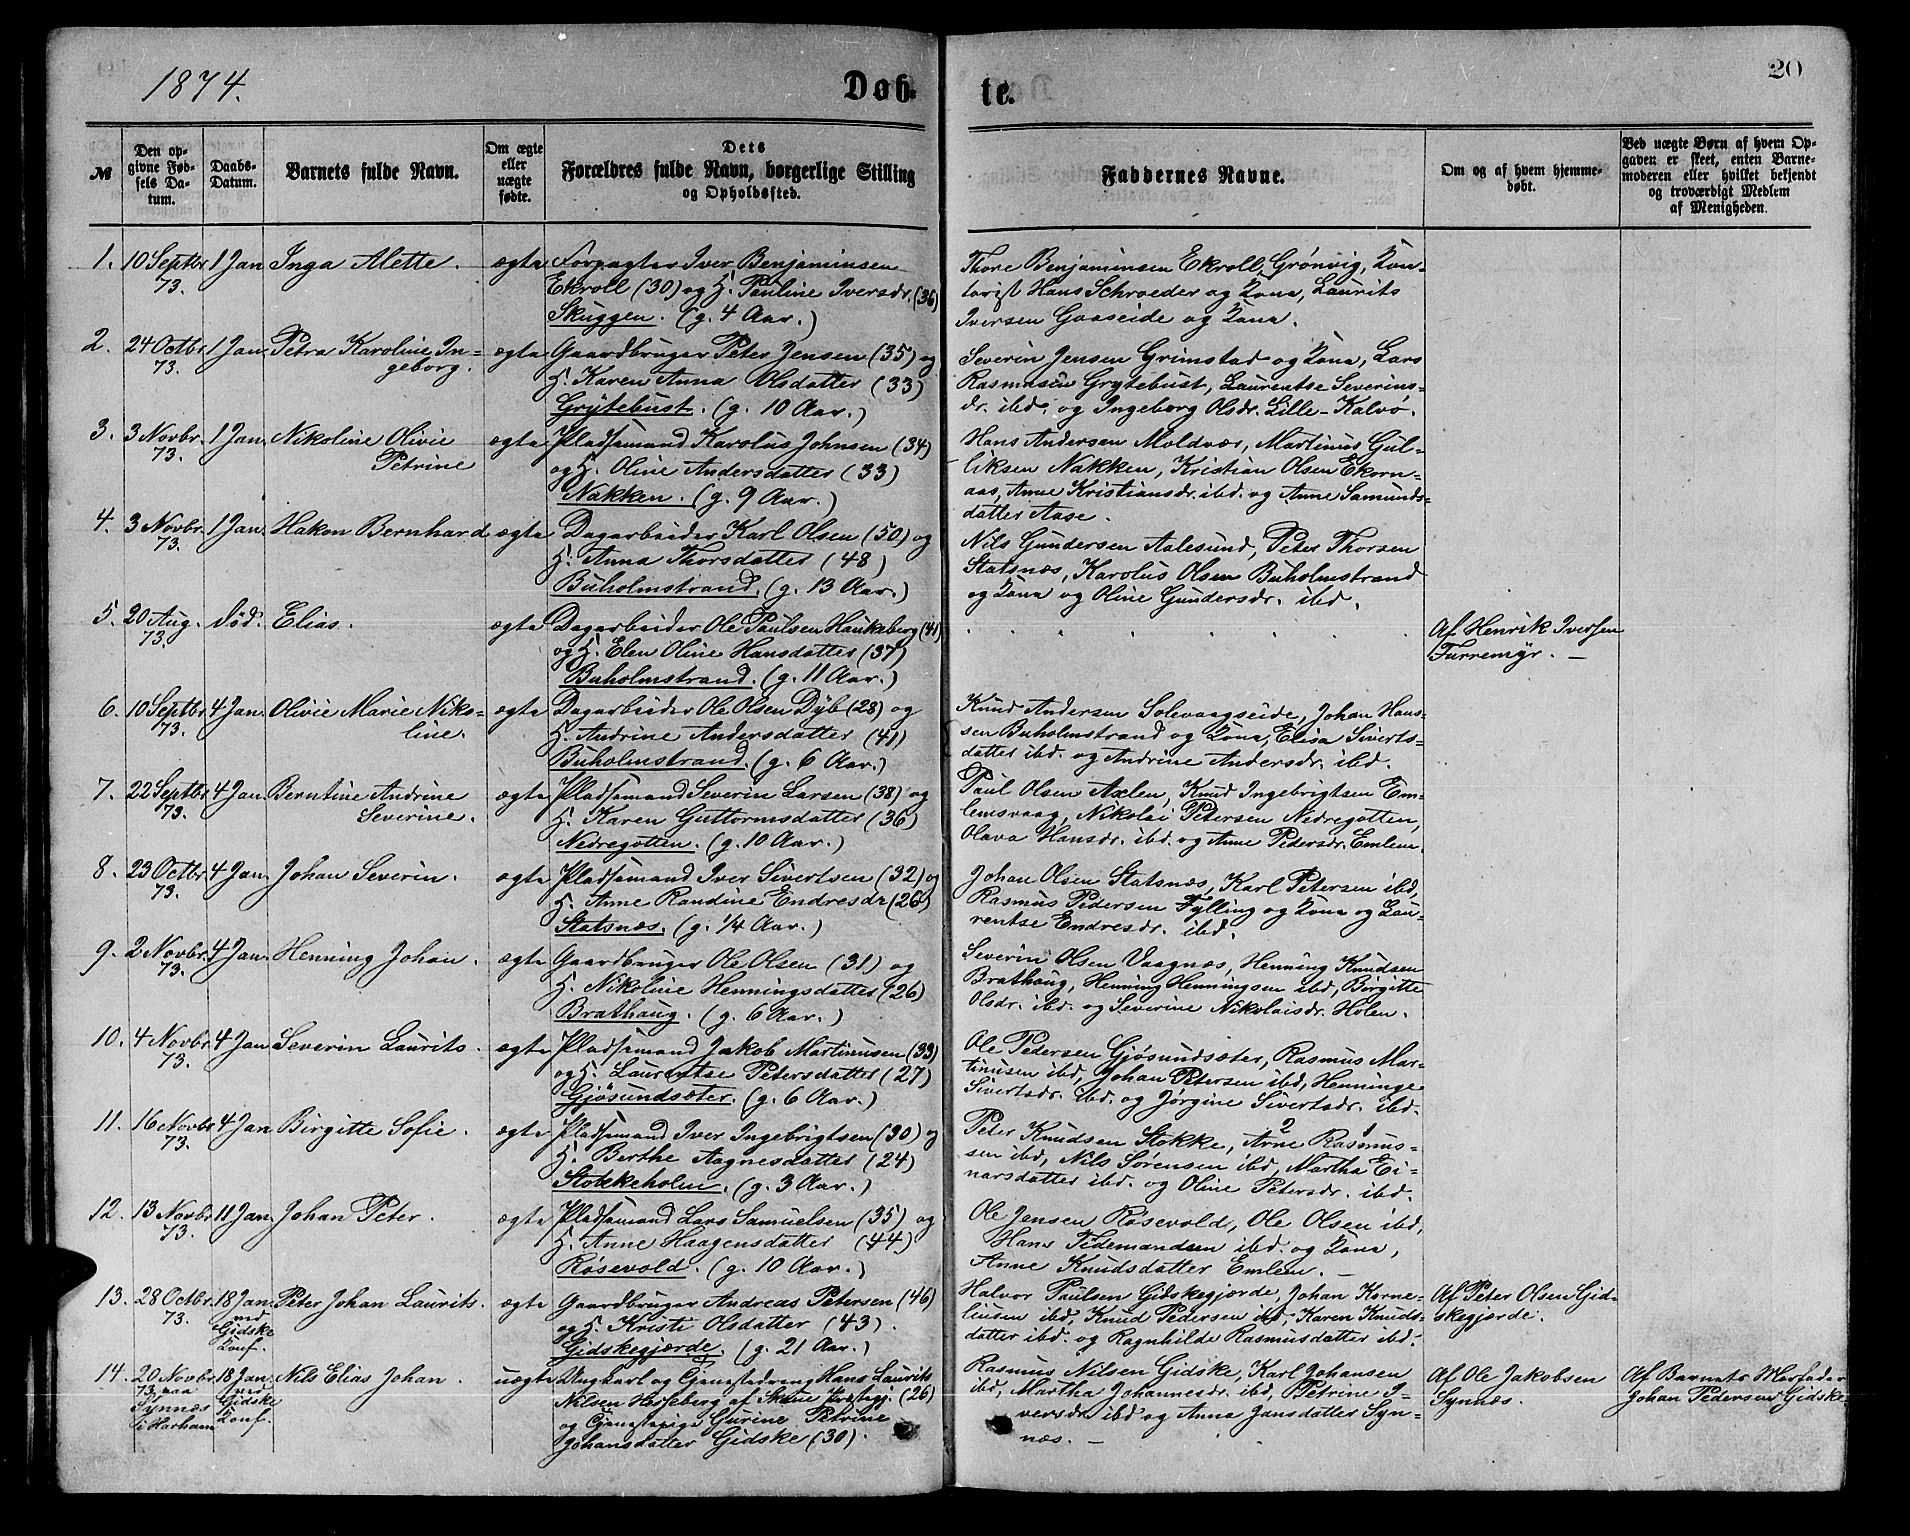 1874.
Døb-
te.
20
№
Den op-
givne Fød-
sels Da-
tum.
Daabs-
Datum.
Barnets fulde Navn.
Om ægte
eller
uægte
fødte.
Dets
Forældres fulde Navn, borgerlige Stilling
og Opholdssted.
Faddernes Navne.
Om og af hvem hjemme-
døbt.
Ved uægte Børn af hvem Op-
gaven er skeet, enten Barne-
moderen eller hvilket bekjendt
og troværdigt Medlem
af Menigheden.
1. 10 Septbr. 1 Jan. Inga Alette. ægte Forpagter Iver Benjaminsen
73. Ekroll (30) og H. Pauline Iversdr. (36)
Skuggen. (g. 4 Aar.)
Thore Benjaminsen Ekroll, Grønvig, Kon-
torist Hans Schroeder og Kona, Laurits
Iversen Gaaseide og Kona.
2. 24 Octbr. 1 Jan. Petra Karoline In- ægte Gaardbruger Peter Jensen (35) og
73. geborg. H. Karen Anna Olsdatter (33)
Grytebust. (g. 10 Aar.)
Severin Jensen Grimstad og Kona, Lars
Rasmusen Grytebust, Laurentse Severins-
dr. ibd. og Ingeborg Olsdr. Lille-Kalvø.
3. 3 Novbr. 1 Jan. Nikoline Olivie ægte Pladsemand Karolus Johnsen (34)
73. Petrine og H. Oline Andersdatter (33)
Nakken. (g. 9 Aar.)
Hans Andersen Moldvær, Martinus Gul-
liksen Nakken, Kristian Olsen Ekorn-
aas, Anne Kristiansdr. ibd. og Anne Samunds-
datter Aase.
4. 3 Novbr. 1 Jan. Hakon Bernhard ægte Dagarbeider Karl Olsen (50) og
73. H. Anna Thorsdatter (48)
Buholmstrand. (g. 13 Aar.)
Nils Gundersen Aalesund, Peter Thorsen
Statsnæs, Karolus Olsen Buholmstrand
og Kona og Oline Gundersdr. ibd.
5. 20 Aug. død. Elias. ægte Dagarbeider Ole Paulsen Haukeberg (41)
73. og H. Elen Oline Hansdatter (37)
Buholmstrand. (g. 11 Aar.)
Af Henrik Iversen
Furremyr. —
6. 10 Septbr. 4 Jan. Olivie Marie Niko- ægte Dagarbeider Ole Olsen Dyb (28) og
73. line. H. Andrine Andersdatter (41)
Buholmstrand. (g. 6 Aar.)
Knud Andersen Solevaagseide, Johan Han-
sen Buholmstrand og Kona, Elisa Siverts-
datter ibd. og Andrine Andersdr. ibd.
7. 22 Septbr. 4 Jan. Berntine Andrine ægte Pladsemand Severin Larsen (38) og
73. Severine. H. Karen Guttormsdatter (36)
Nedregotten. (g. 10 Aar.)
Paul Olsen Axlen, Knud Ingebrigtsen Em-
lemsvaag, Nikolai Petersen Nedregotten,
Olava Hansdr. ibd. og Anne Pedersdr. Emlem.
8. 23 Octbr. 4 Jan. Johan Severin. ægte Pladsemand Iver Sivertsen (32) og
73. H. Anne Randine Endresdr (26)
Statsnæs. (g. 1/4 Aar.)
Johan Olsen Statsnæs, Karl Petersen ibd,
Rasmus Pedersen Fylling og Kona og Lau-
rentse Endresdr. ibd.
9. 2 Novbr. 4 Jan. Henning Johan. ægte Gaardbruger Ole Olsen (31) og
73. H. Nikoline Henningsdatter (26)
Brathaug. (g. 6 Aar.)
Severin Olsen Vaagnæs, Henning Knudsen
Brathaug, Henning Henningsen ibd, Birgitte
Olsdr. ibd. og Severine Nikolaisdr. Holen.
10. 4 Novbr. 4 Jan Severin Laurits. ægte Pladsemand Jakob Martinusen (33)
73. og H. Laurentse Petersdatter (27)
Gjøsundsæter. (g. 6 Aar.)
Ole Pedersen Gjøsundsæter, Rasmus Mar-
tinusen ibd, Johan Petersen ibd, Henninge
Sivertsdr. ibd. og Jørgine Sivertsdr. ibd.
11. 16 Novbr 4 Jan Birgitte Sofie. ægte Pladsemand Iver Ingebrigtsen (30) og
73. H. Berthe Aagnesdatter (24)
Stokkeholm. (g. 3 Aar.)
2 1
Peter Knudsen Stokke, Arne Rasmus-
sen ibd, Nils Sørensen ibd, Martha Ei-
narsdatter ibd. og Oline Petersdr. ibd.
12. 13 Novbr 11 Jan. Johan Peter. ægte Pladsemand Lars Samuelsen (35) og
73. H. Anne Haagensdatter (44)
Røsevold. (g. 10 Aar.)
Ole Jensen Røsevold, Ole Olsen ibd,
Hans Tidemandsen ibd. og Kona,
Anne Knudsdatter Emlem. —
13. 28 Octbr. 18 Jan. Peter Johan Laurits. ægte Gaardbruger Andreas Petersen (46)
73. ved Gidske Konf. og H. Kristi Olsdatter (43).
Gidskegjærde. (g. 21 Aar.)
Halvor Paulsen Gidskegjærde, Johan Korne-
liusen ibd, Knud Pedersen ibd, Karen Knuds-
datter ibd. og Ragnhilde Rasmusdatter ibd.
Af Peter Olsen Gid-
skegjærde.
14. 20 Novbr. 18 Jan. Nils Elias Johan. uægte Ungkarl og Tjenestedreng Hans Laurits
73, paa ved Nilsen Hesseberg af (26)
Synnæs Gidske og Tjenestepige Gurine Petrine
i Harham Konf. Johansdatter Gidske (30).
Rasmus Nilsen Gidske, Karl Johansen
ibd, Martha Johannesdr. ibd, Petrine I-
versdr. ibd og Anna Jansdatter Syn-
næs. —
Af Ole Jakobsen
Synnæs.
Af Barnets Morfader
Johan Pedersen Gidske.